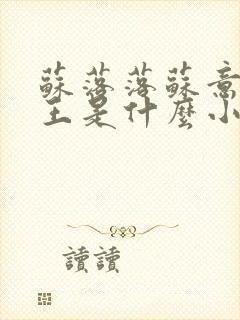 蘇落落蘇意
王是什麼小
讀讀